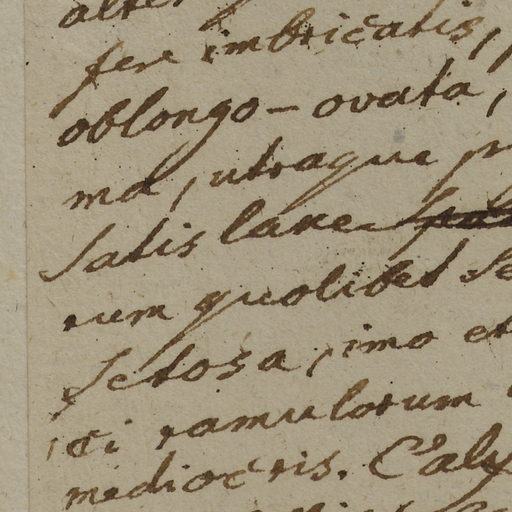 alter
fere imbricatis,
oblongo-ovata,
ma, utraque
satis laxe
rum quolibet se
setosa, imo et
ci ramulorum
mediocris. Caly